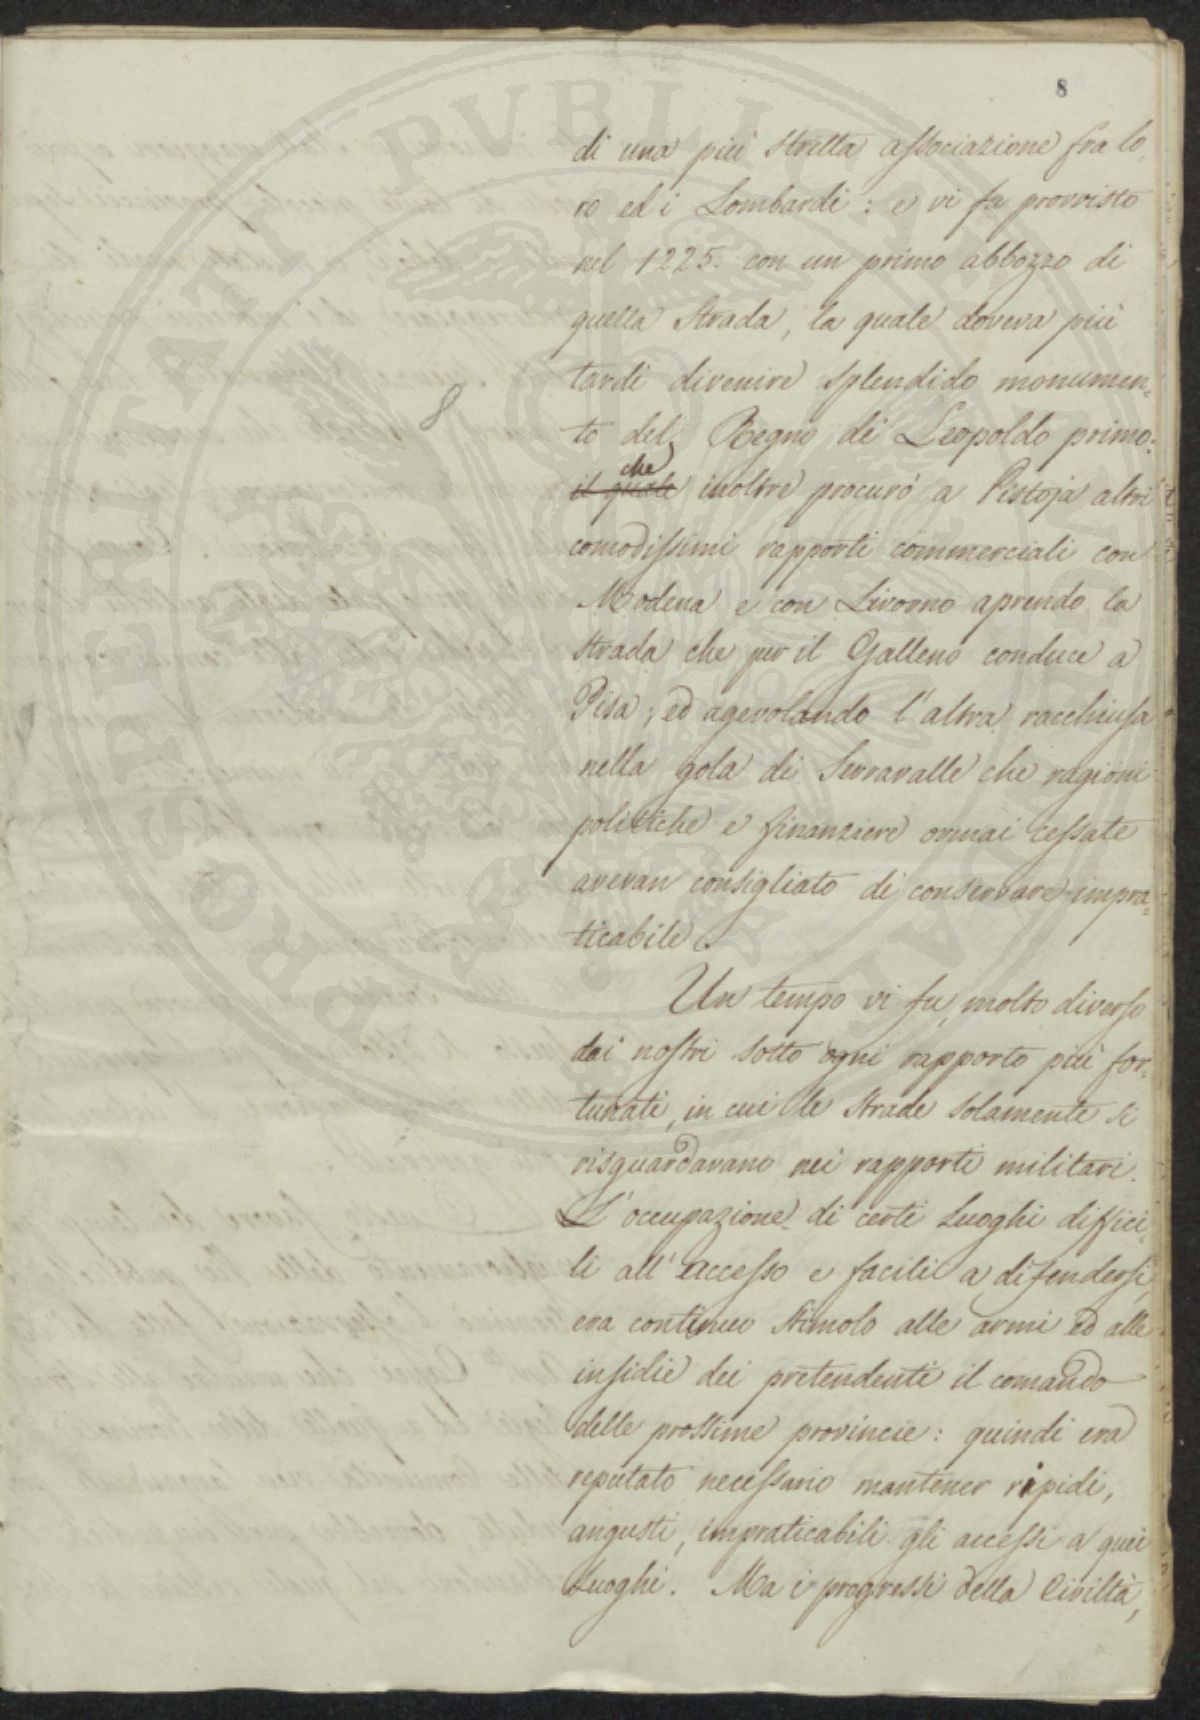 8
di una più stretta associazione fra lo
ro ed i Lombardi : e vi fu provvisto
nel 1225. con un primo abbozzo di
quella Strada, la quale doveva più
tardi divenire splendido monumen=
to del Regno di Leopoldo primo:
che
il quale inoltre procurò a Pistoja altri
comodissimi rapporti commerciali con
Modena e con Livorno aprendo la
strada che per il Galleno conduce a
Pisa ; ed agevolando l'altra racchiusa
nella gola di Serravalle che ragioni
politiche e finanziere ormai cessate
avevan consigliato di conservare impra=
ticabile.
Un tempo vi fu, molto diverso
dai nostri sotto ogni rapporto più for=
tunati, in cui le Strade solamente si
risguardavano nei rapporti militari.
L'occupazione di certi Luoghi diffici=
li all'accesso e facili a difendersi,
era continuo stimolo alle armi ed alle
insidie dei pretendenti il comando
delle prossime provincie : quindi era
reputato necessario mantener ripidi,
angusti, impraticabili gli accessi a quei
Luoghi. Ma i progressi della Civiltà,
8
PROSPERITATI PVBLICAE